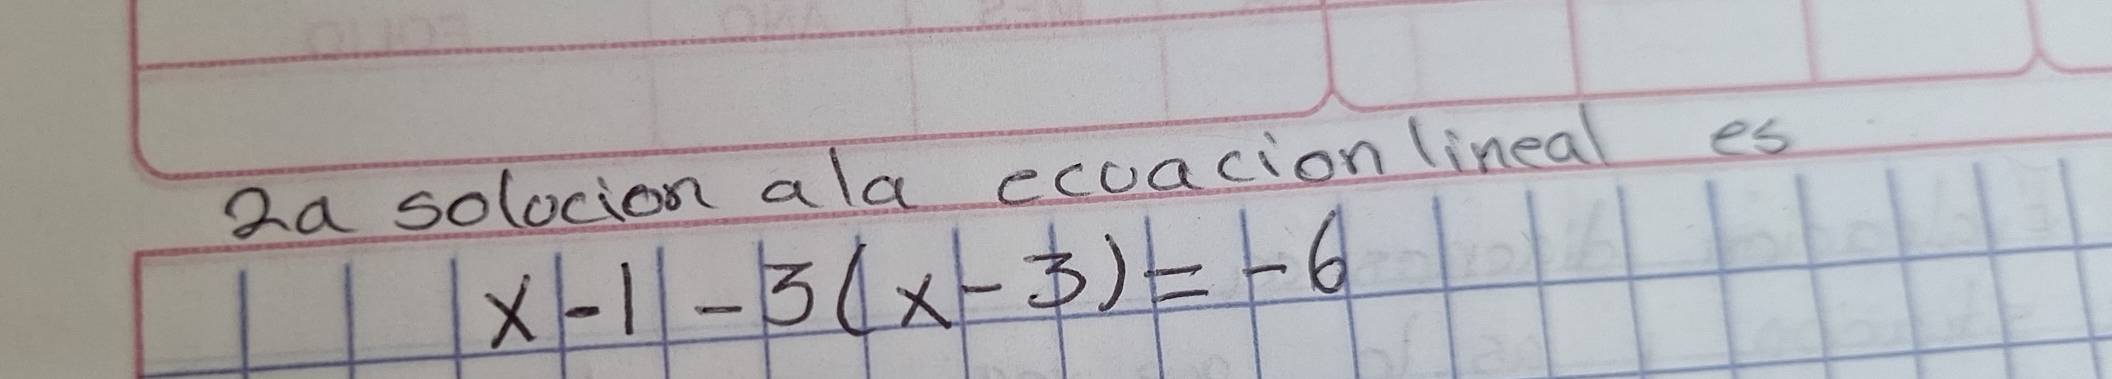 2a solocion ala ecuacion lineal es
x - 1 - 3(x - 3) = - 6